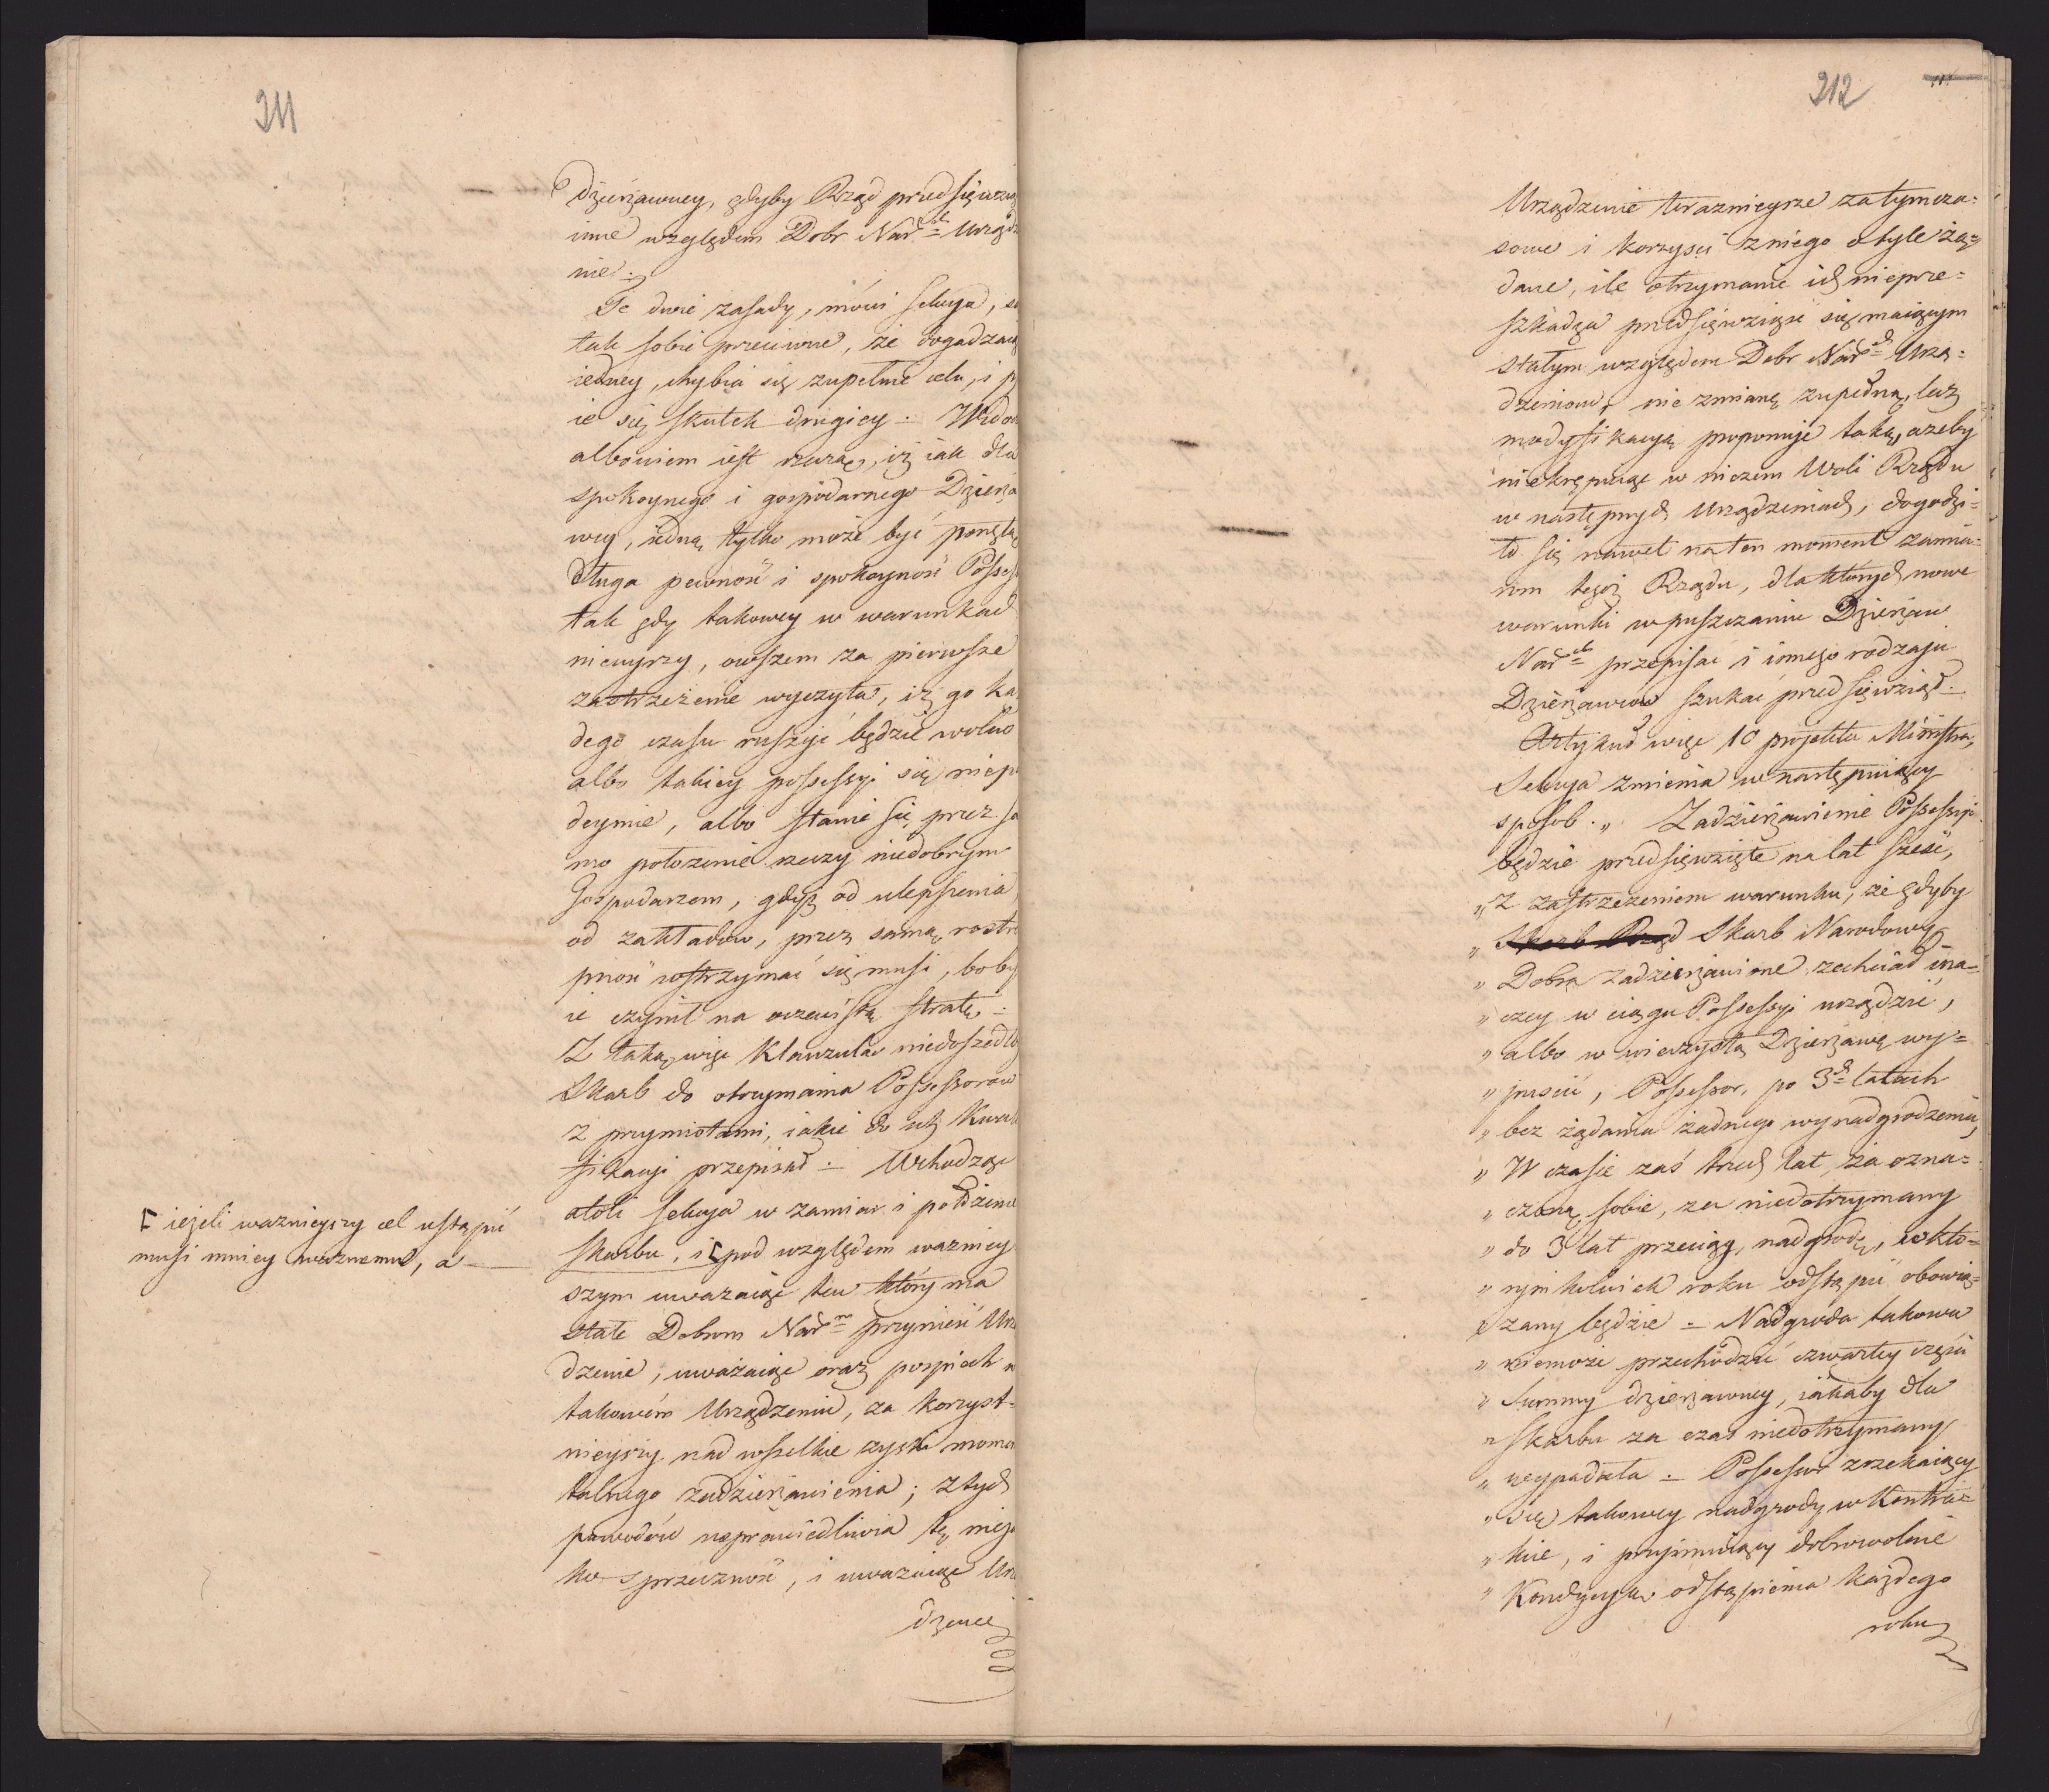 211
Dzierżawney, gdyby Rząd przedsięwzią
inne względem Dobr Nar<sup>ch</sup> Urządz
nie.
Te dwie zasady, mówi Sekcya, są
tak sobie przeciwne, że dogadzaią
iedney, chybia się zupełnie celu, i ps
ie się skutek drugiey. Widocz
albowiem iest rzeczą, iż iak dla
spokoynego i gospodarnego Dzierża
wcy, iedną tylko może być ponętą
długa pewność i spokoyność Possess
tak gdy takowey w warunkach
nieuyrzy, owszem za pierwsze
zastrzeżenie wyczyta, iż go ka
dego czasu ruszyć będzie wolno
albo takiey possessyi się niepo
deymie, albo stanie się przez sa
mo położenie rzeczy niedobrym
Gospodarzem, gdyż od ulepszenia
od zakładow, przez samą roztro
pność wstrzymać się musi, boby
ie czynił na oczewistą stratę.
Z taką więc Klauzulą niedoszedłby
Skarb do otrzymania Possessorow
z przymiotami, iakie do ich Kwali
fikacyi przepisał. Wchodząc
atoli Sekcya w zamiar i położenie
Skarbu, i ⌈ pod względem ważniey
szym uważaiąc ten który ma
stałe Dobrom Nar<sup>m</sup> przynieść Urzą
dzenie, uważaiąc oraz pospiech w
takowém Urządzeniu, za korzyst=
nieyszy nad wszelkie zyski momen
talnego zadzierżawienia; z tych
powodów usprawiedliwia tę nieja
ko sprzeczność, i uważaiąc Urzą
dzenie
⌈ ieżeli ważnieyszy cel ustąpić
musi mniey ważnemu, a
212
Urządzenie teraznieysze za tymcza=
sowe i korzyści z niego o tyle żą=
dane, ile otrzymanie ich nieprze=
szkadza przedsięwziąść się maiącym
stałym względem Dobr Nar<sup>ch</sup> Urzą=
dzeniom, nie zmianę zupełną, lecz
modyfikacyą proponuje taką, ażeby
niekrępuiąc w niczem Woli Rządu
w następnych Urządzeniach, dogodzi=
ło się nawet na ten moment zamia=
rom tegoż Rządu, dla których nowe
warunki w puszczaniu Dzierżaw
Nar<sup>ch</sup> przepisać i innego rodzaju
Dzierżawców szukać przedsięwziął.
Artykuł więc 10 projektu Ministra,
Sekcya zmienia w następuiący
sposob. „ Zadzierżawienie Possessyi
będzie przedsięwzięte na lat sześć,
„ z zastrzeżeniem warunku, że gdyby
„ Skarb Rząd Skarb Narodowy
„ Dobra zadzierżawione zechciał ina=
„ czey w ciągu Possessyi urządzić,
„ albo w wieczystą Dzierżawę wy=
„ puścić, Possessor, po 3<sup>ch</sup> latach
„ bez żądania żadnego wynadgrodzenia,
„ W czasie zaś trzech lat, za ozna=
„ czoną sobie, za niedotrzymany
„ do 3 lat przeciąg, nadgrodę, w któ=
„ rymkolwiek roku odstąpić obowią=
zany będzie = Nadgroda takowa
„ niemoże przechodzić czwartey części
„ Summy dzierżawney, iakaby dla
„ Skarbu za czas niedotrzymany
„ wypadała. Possessor zrzekaiący
„ się takowey nadgrody w Kontra=
„ kcie, i przyimuiący dobrowolnie
„ Kondycyą odstąpienia każdego
roku